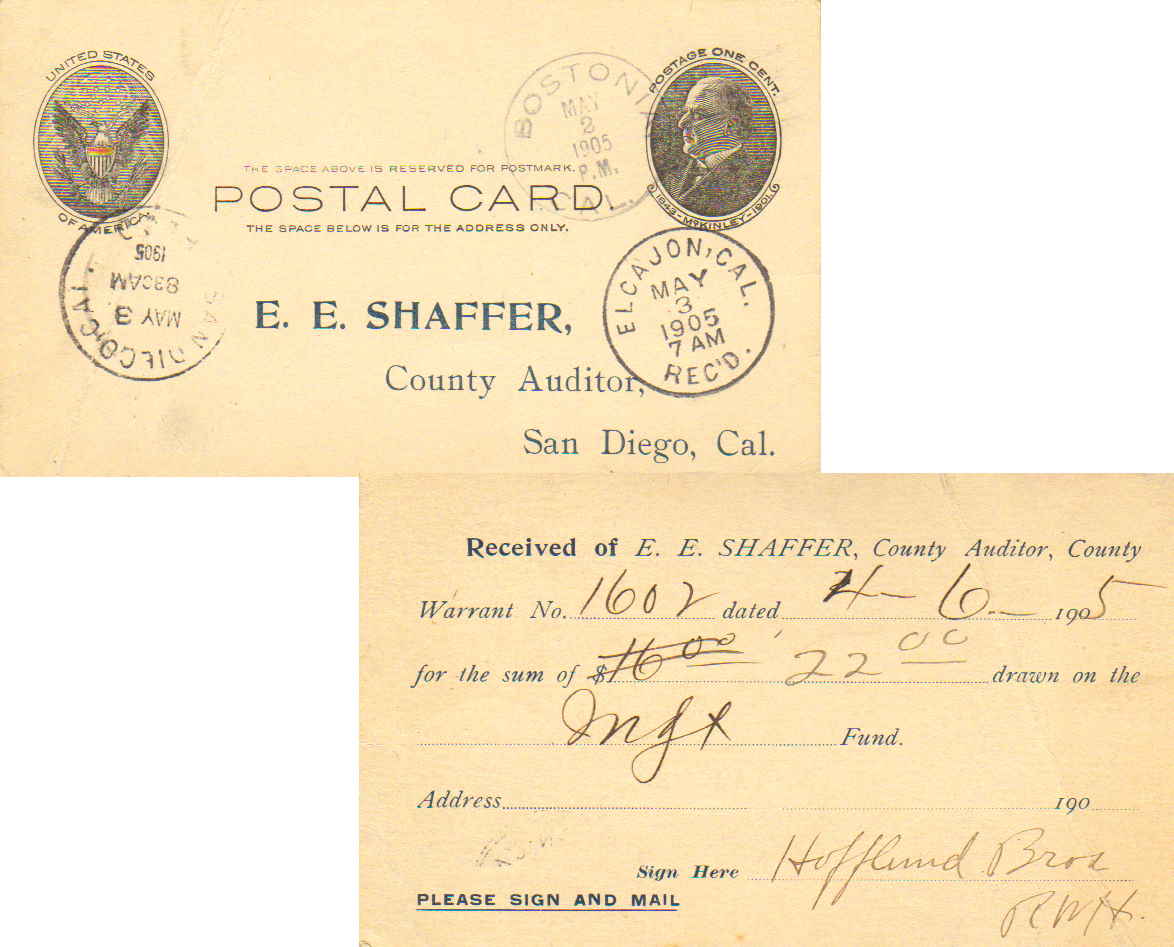 UNITED STATES
OF AMERICA
POSTAGE ONE CENT.
1843-McKINLEY-1901
BOSTONIA
MAY
2
1905
P.M.
CAL.
THE SPACE ABOVE IS RESERVED FOR POSTMARK.
POSTAL CARD.
THE SPACE BELOW IS FOR THE ADDRESS ONLY.
SAN DIEGO, CAL.
MAY 3
830AM
1905
ELCAJON, CAL.
MAY
3
1905
7 AM
REC'D.
E. E. SHAFFER,
County Auditor,
San Diego, Cal.
Received of E. E. SHAFFER, County Auditor, County
Warrant No. 1602 dated 4-6- 1905
for the sum of $16.00 22 00 drawn on the
Fund.
Address 190
Sign Here Hofflund Bros
RWH.
PLEASE SIGN AND MAIL